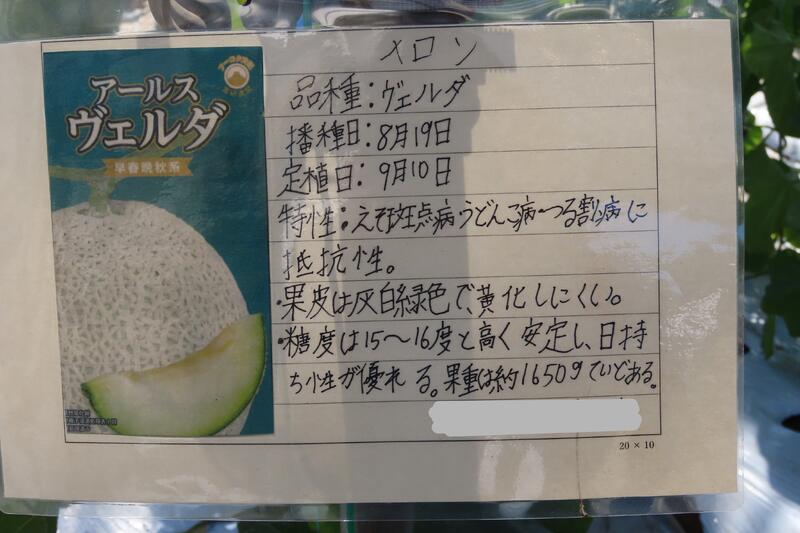 アールス
ヴェルダ
早春晩秋系
メロン
品種：ヴェルダ
播種日：8月19日
定植日：9月10日
特性：えそ斑点病うどんこ病つる割病に
抵抗性。
・果皮は灰白緑色で、黄化しにくい。
・糖度は15～16度と高く安定し、日持
ち性が優れる。果重は約1650gていどある。
20×10